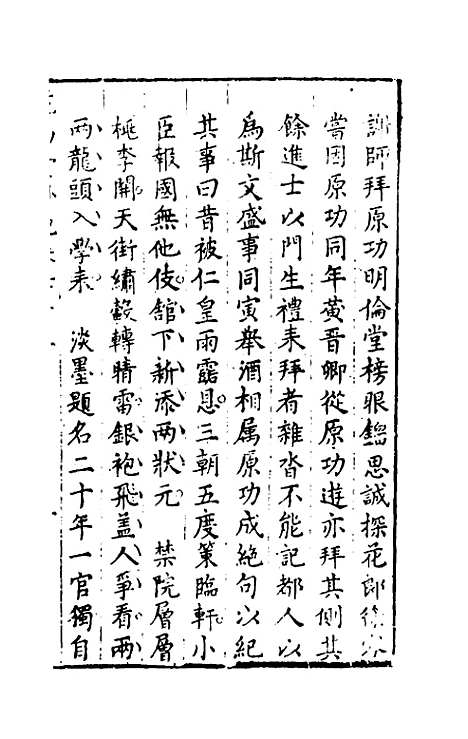 謝師拜原功明倫堂榜眼鎦思誠探花郎徐
嘗因原功同年黄晋卿從原功遊亦拜其側其
餘進士以門生禮来拜者雜沓不能記都人以
爲斯文盛事同寅舉酒相属原功成絶句以紀
其事曰昔被仁皇雨露恩三朝五度策臨軒小
臣報國無他伎舘下新添两狀元　禁院層層
桃李開天街繡轂轉晴雷銀袍飛盖人爭看兩
两龍頭入學来　淡墨題名二十年一官獨自